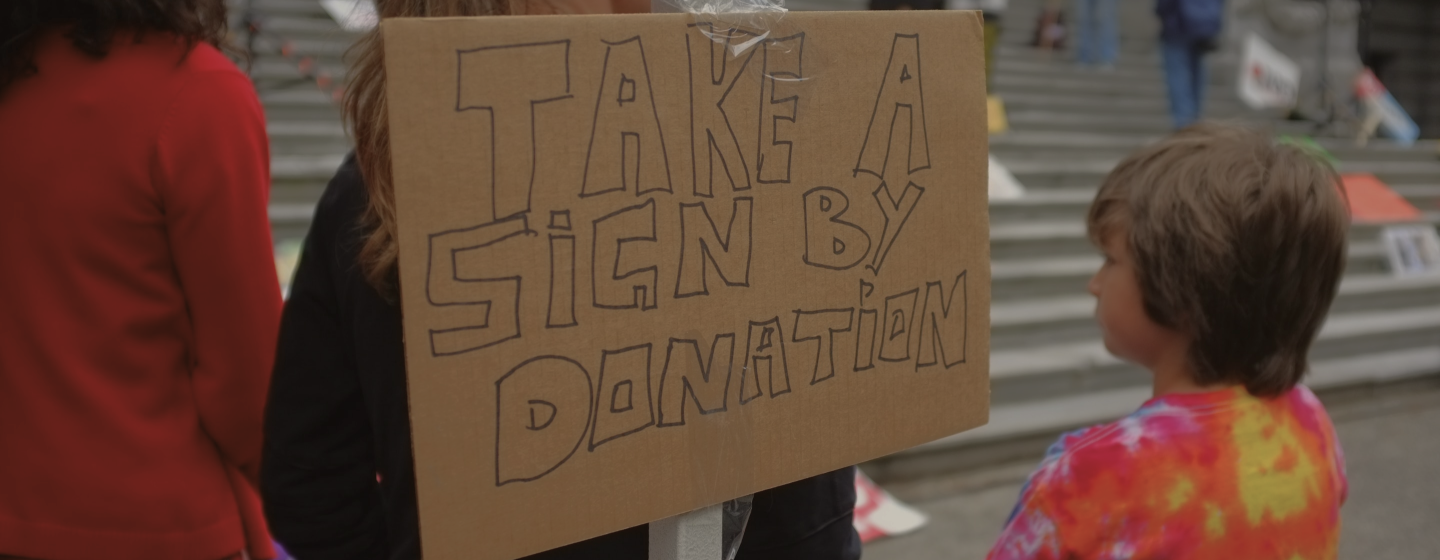 TAKE A
SiGN BY
DONATiON